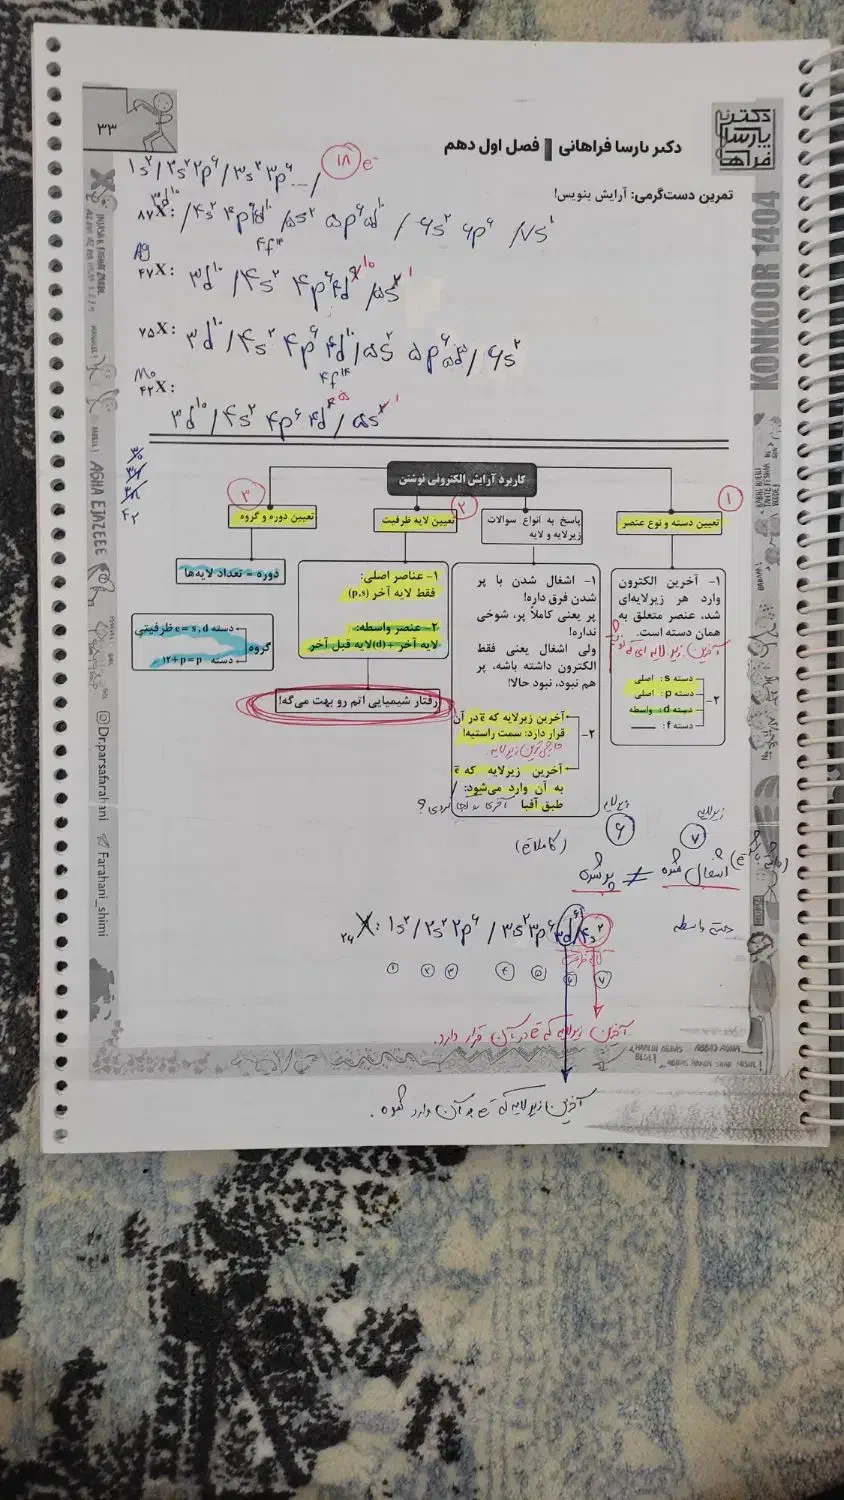 ۳۳
دکتر پارسا فراهانی | فصل اول دهم
دکتر
پارسا
فراها
تمرین دست‌گرمی: آرایش بنویس!
1s² / 2s² 2p⁶ / 3s² 3p⁶ ... /
۱۸ e⁻
3d¹⁰
۸۷X: / 4s² 4p⁶ 4d¹⁰ / 5s² 5p⁶ 5d¹⁰ / 6s² 6p⁶ / 7s¹
4f¹⁴
Ag
۴۷X: 3d¹⁰ / 4s² 4p⁶ 4d⁹ ¹⁰ / 5s² ¹
۷۵X: 3d¹⁰ / 4s² 4p⁶ 4d¹⁰ / 5s² 5p⁶ 5d⁵ / 6s²
4f¹⁴
Mo
۴۲X:
3d¹⁰ / 4s² 4p⁶ 4d⁴ ⁵ / 5s² ¹
KONKOOR 1404
کاربرد آرایش الکترونی نوشتن
۱
تعیین دسته و نوع عنصر
۱- آخرین الکترون
وارد هر زیرلایه‌ای
شد، عنصر متعلق به
همان دسته است.
۲-
دسته s: اصلی
دسته p: اصلی
دسته d: واسطه
دسته f: ــــ
پاسخ به انواع سوالات
زیرلایه و لایه
۱- اشغال شدن با پر
شدن فرق داره!
پر یعنی کاملاً پر، شوخی
نداره!
ولی اشغال یعنی فقط
الکترون داشته باشه، پر
هم نبود، نبود حالا!
۲-
آخرین زیرلایه که e در آن
قرار دارد: سمت راستیه!
خارجی‌ترین زیرلایه
آخرین زیرلایه که e
به آن وارد می‌شود:
طبق آفبا
۲
تعیین لایه ظرفیت
۱- عناصر اصلی:
فقط لایه آخر (p,s)
۲- عنصر واسطه:
لایه آخر + (d)لایه قبل آخر
رفتار شیمیایی اتم رو بهت می‌گه!
۳
تعیین دوره و گروه
دوره = تعداد لایه‌ها
گروه
دسته e = s,d ظرفیتی
دسته ۱۲+p = p
۴۲
زیرلایه
۷
زیرلایه
۶
اشغال شده ≠ پر شده
(کاملا)
دسته واسطه
1s² / 2s² 2p⁶ / 3s² 3p⁶ 3d⁶ / 4s²
۱ ۲ ۳ ۴ ۵ ۶ ۷
آخرین زیرلایه که e در آن قرار دارد.
آخرین زیرلایه که e به آن وارد میشود.
AGHA EJAZEEE
Dr.parsafarahani
Farahani_shimi